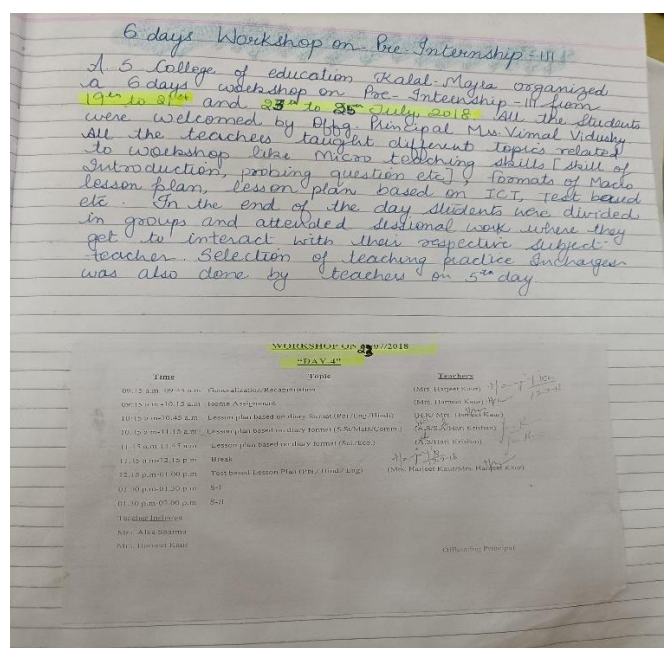 6 days Workshop on Pre-Internship-III
A. S College of education Kalal-Majra organized
a 6 days workshop on Pre-Internship-III from
19th to 21st and 23rd to 25th July, 2018. All the students
were welcomed by Offg. Principal Ms. Vimal Vidushy.
All the teachers taught different topics related
to workshop like micro teaching skills [skill of
Introduction, probing question etc], formats of Macro
lesson plan, lesson plan based on ICT, test based
etc. In the end of the day, students were divided
in groups and attended sessional work where they
get to interact with their respective subject-
-teacher. Selection of teaching practice Incharges
was also done by teachers on 5th day.
WORKSHOP ON 23/07/2018
"DAY 4"
Time Topic Teachers
09:15 a.m- a.m Generalization/Recapitulation (Mrs. Harjeet Kaur)
a.m-10.15 a.m Home Assignment (Mrs. Harneet Kaur)
10:15 a.m-10.45 a.m Lesson plan based on diary format (Pbi/Eng/Hindi) (H.K/ Mrs. Kaur)
10.45 a.m-11.15 a.m Lesson plan based on diary format (S.S/Math/Comm.) Krishan)
11.15 a.m-11.45 a.m Lesson plan based on diary format (Sci./Eco.) Krishan)
11.45 a.m-12.15 p.m Break
12.15 p.m-01.00 p.m Test based Lesson Plan (Pbi/ Hindi/ Eng) (Mrs. Harjeet Kaur/Mrs. Kaur)
01.00 p.m-01.30 p.m S-I
01.30 p.m-02.00 p.m S-II
Teacher Incharge
Mrs. Alka Sharma
Mrs. Harneet Kaur
Officiating Principal